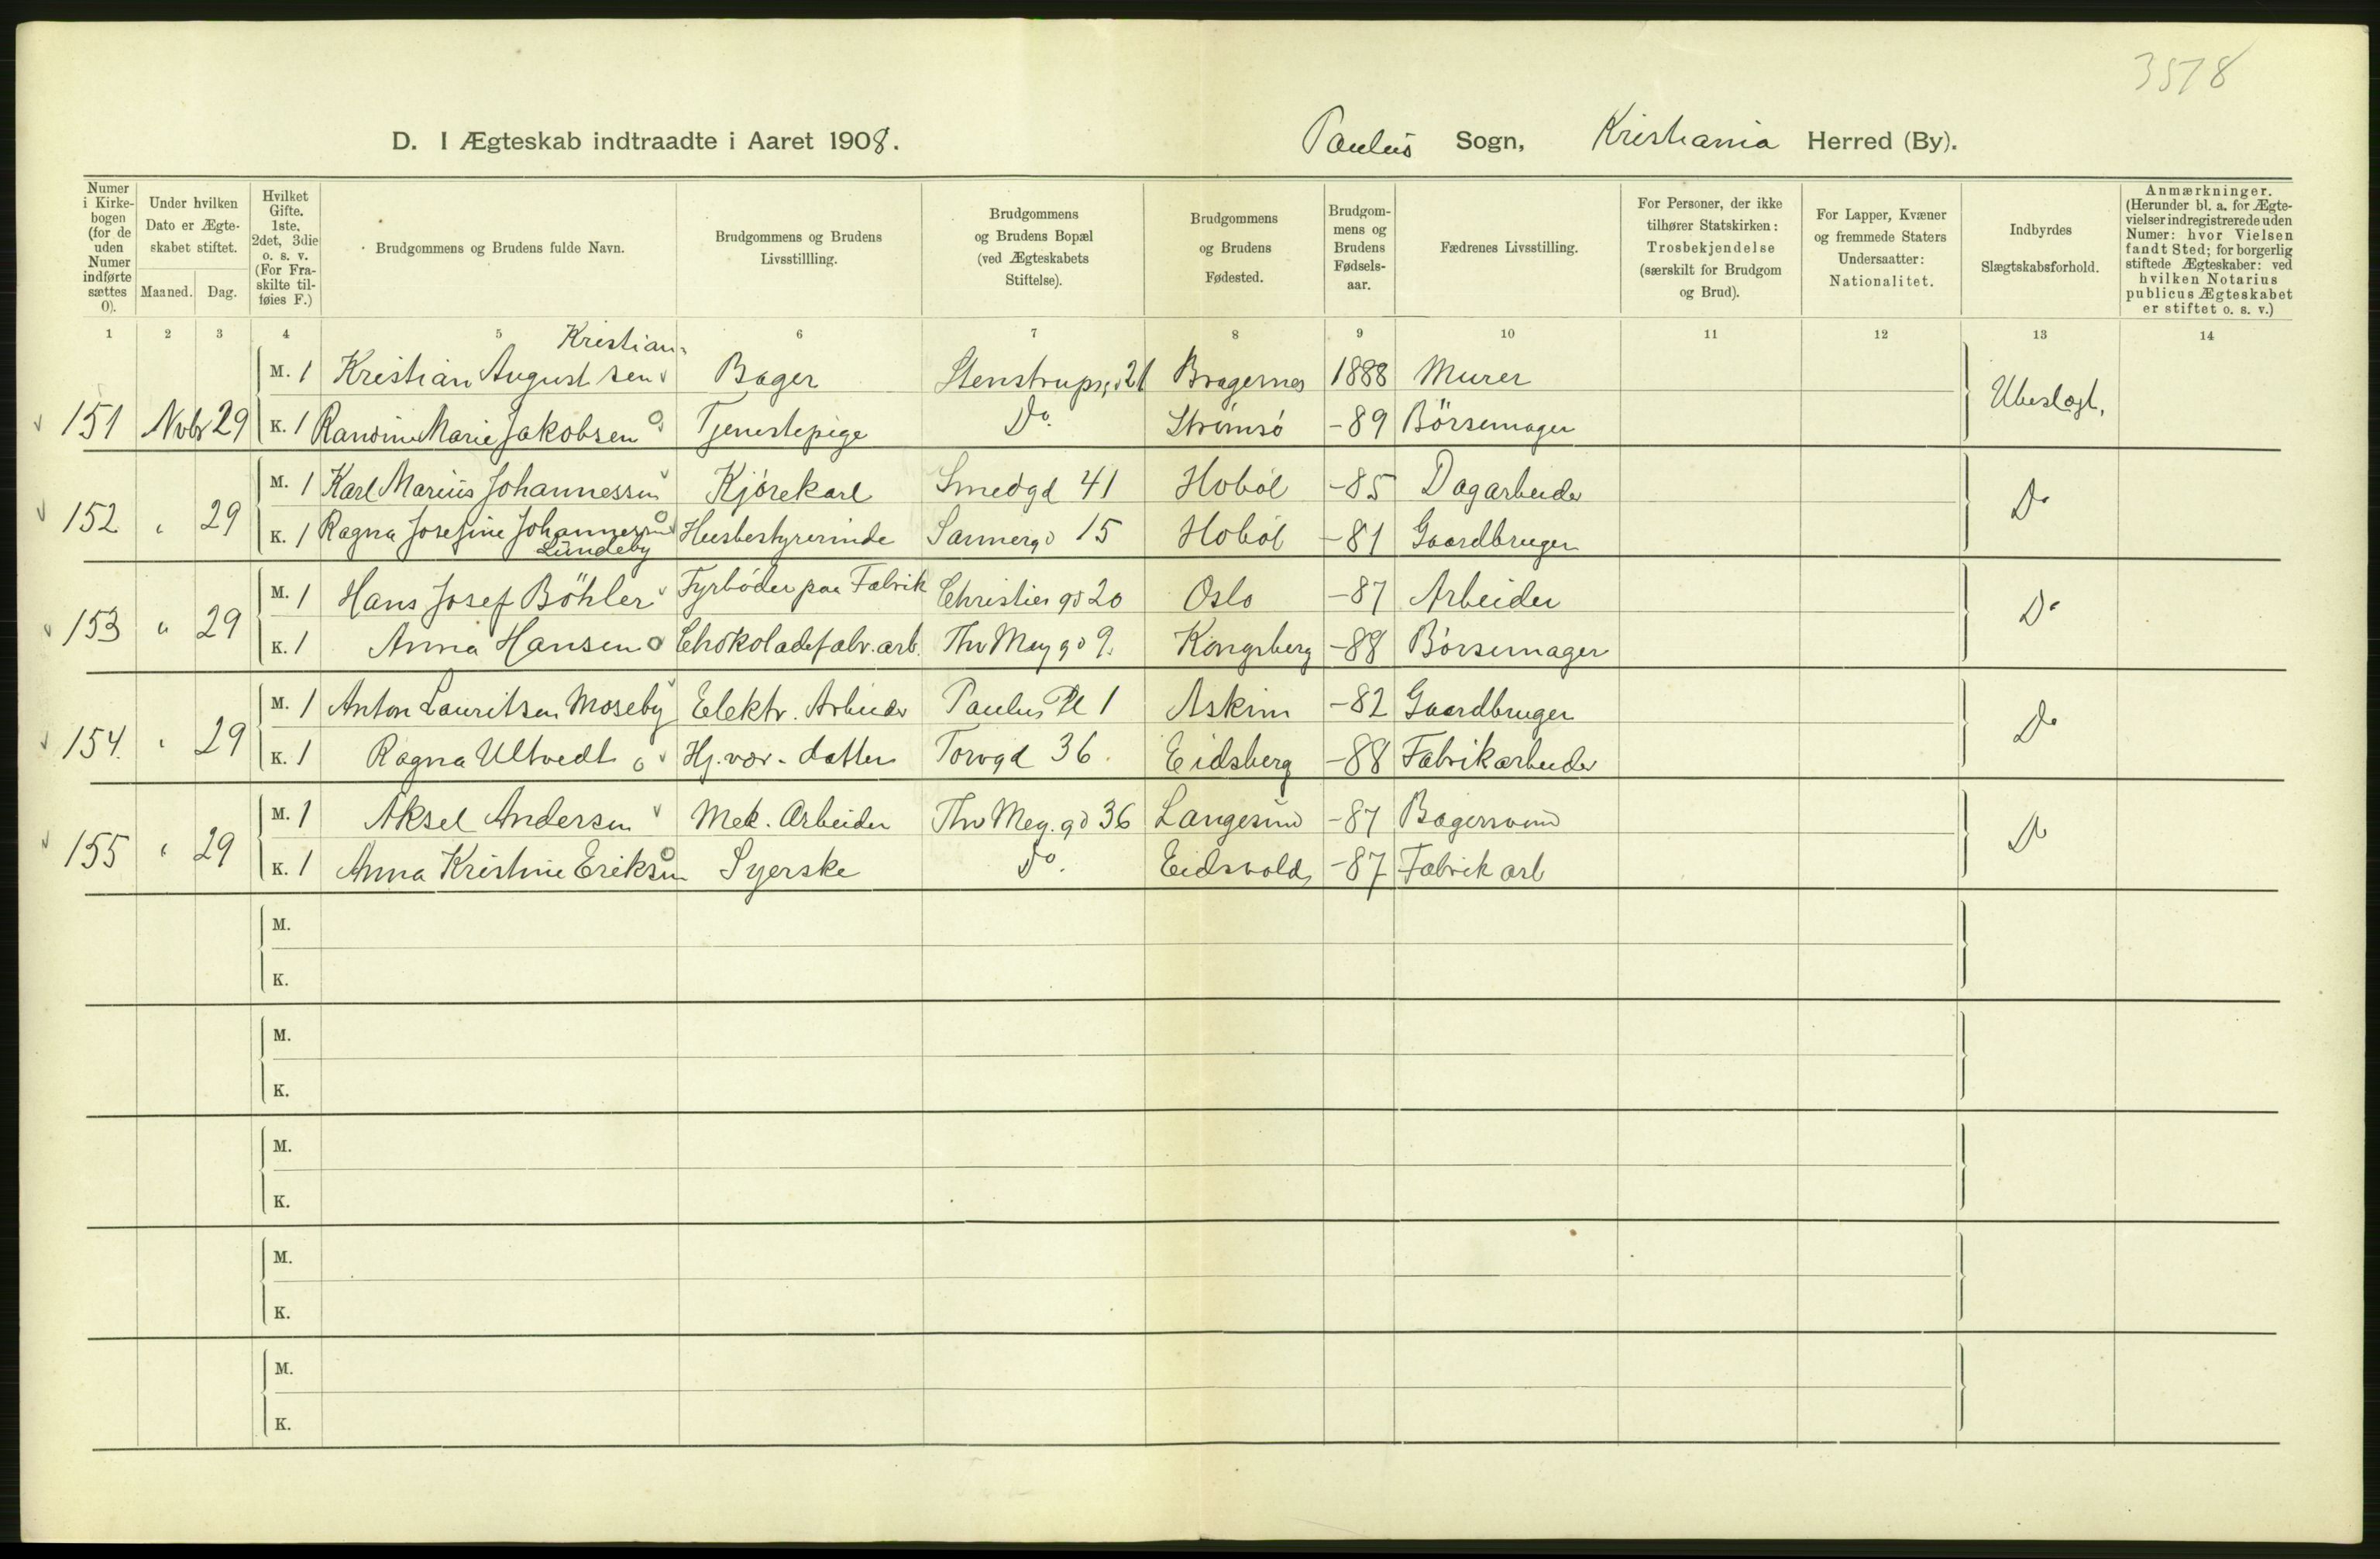 3578
D. I Ægteskab indtraadte i Aaret 1908. Paulus Sogn, Kristiania Herred (By).
Numer i Kirkebogen (for de uden Numer indførte sættes 0).
Under hvilken Dato er Ægteskabet stiftet.
Maaned. Dag.
Hvilket Gifte. 1ste, 2det, 3die o. s. v. (For Fraskilte tilføies F.)
Brudgommens og Brudens fulde Navn.
Brudgommens og Brudens Livsstillling.
Brudgommens og Brudens Bopæl (ved Ægteskabets Stiftelse).
Brudgommens og Brudens Fødested.
Brudgommens og Brudens Fødselsaar.
Fædrenes Livsstilling.
For Personer, der ikke tilhører Statskirken: Trosbekjendelse (særskilt for Brudgom og Brud).
For Lapper, Kvæner og fremmede Staters Undersaatter: Nationalitet.
Indbyrdes Slægtskabsforhold.
Anmærkninger. (Herunder bl. a. for Ægtevielser indregistrerede uden Numer: hvor Vielsen fandt Sted; for borgerlig stiftede Ægteskaber: ved hvilken Notarius publicus Ægteskabet er stiftet o. s. v.)
1 2 3 4 5 6 7 8 9 10 11 12 13 14
Kristian-
M. 1 Kristian August sen Bager Stenstrupg. 21 Bragernes 1888 Murer
151 Nvbr 29 K. 1 Marie Jakobsen Tjenestepige Do. Strömsö -89 Börsemager Ubeslægt.
M. 1 Karl Marius Johannessen Kjörekarl Smedgd 41 Hoböl -85 Dagarbeider
152 " 29 K. 1 Ragna Josefine Johannessen Husbestyrerinde Sannergd 15 Hoböl -81 Gaardbruger Do
Lundeby
M. 1 Hans Josef Böhler Fyrböder paa Fabrik Christies gd 20 Oslo -87 Arbeider
153 " 29 K. 1 Anna Hansen Chokoladefabr. arb. Thv Mey gd 9. Kongsberg -88 Börsemager Do
M. 1 Anton Lauritsen Moseby Elektr. Arbeider Paulus Pl 1 Askim -82 Gaardbruger
154. " 29 K. 1 Ragna Ultvedt Hj. vær. datter Torvgd 36. Eidsberg -88 Fabrikarbeider Do
M. 1 Aksel Andersen Mek. Arbeider Thv Mey. gd 36 Langesund -87 Bagersvend
155 " 29 K. 1 Anna Kristine Eriksen Syerske Do. Eidsvold -87 Fabrik arb Do
M.
K.
M.
K.
M.
K.
M.
K.
M.
K.